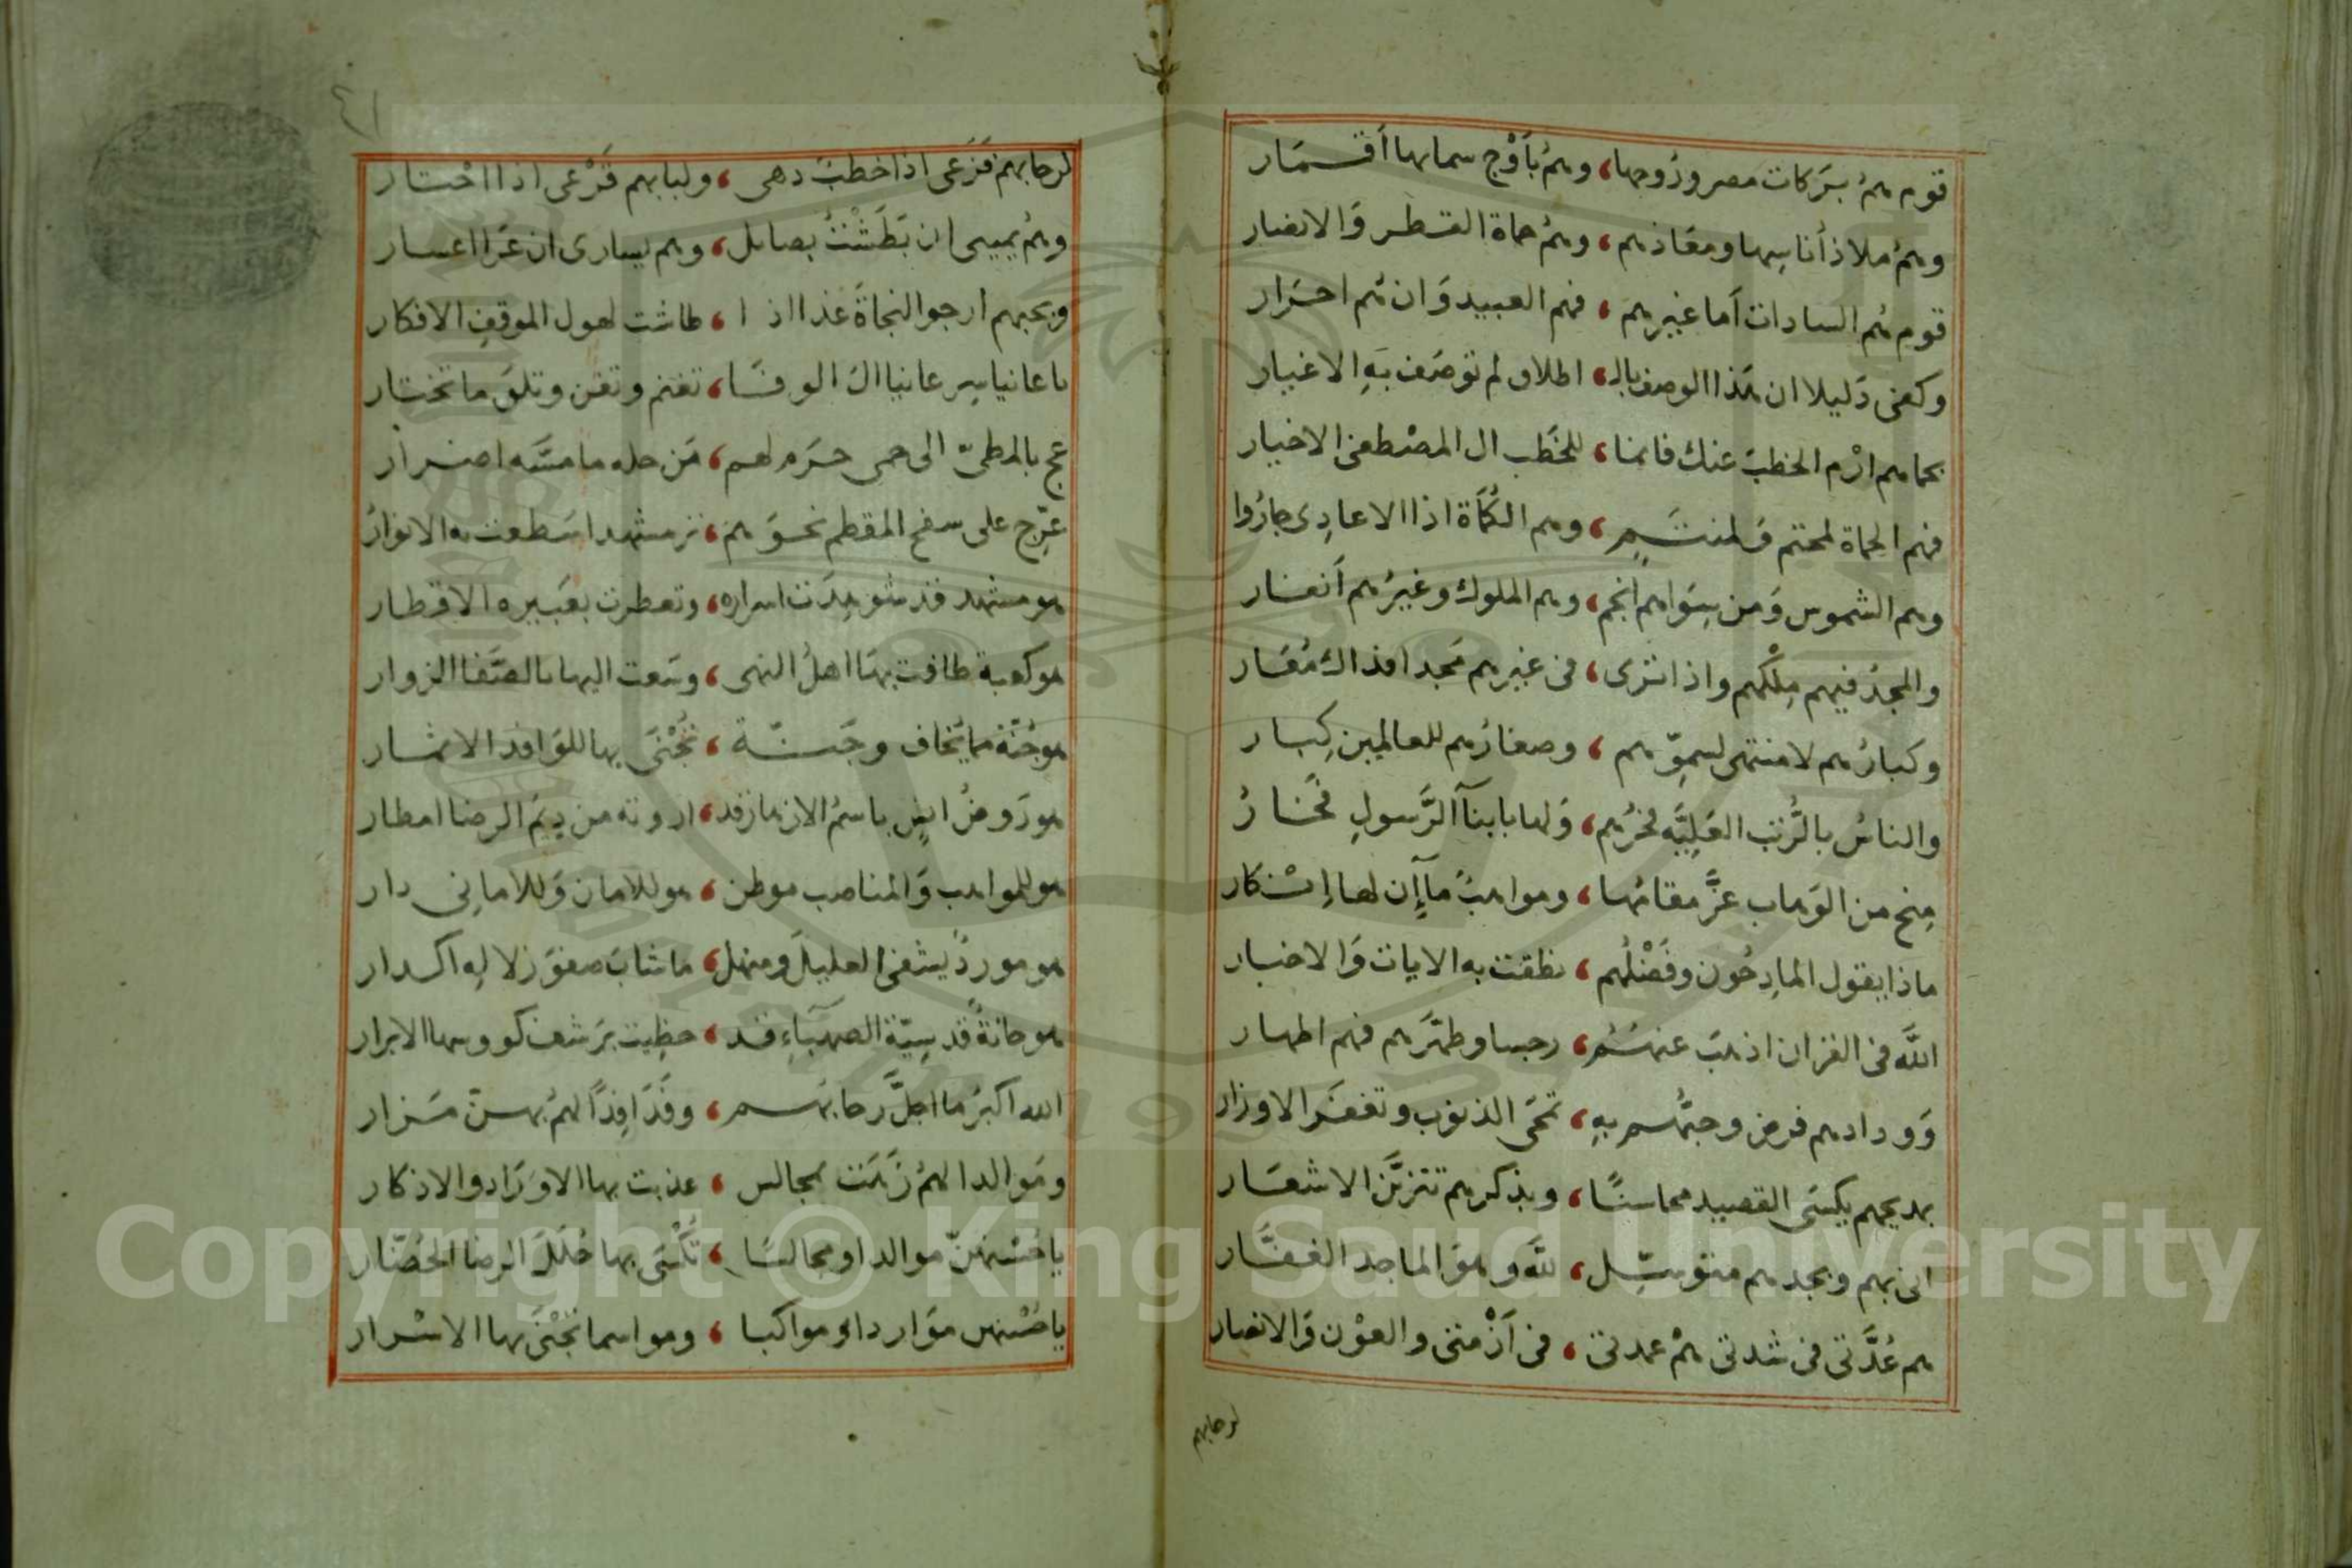 قوم هم بركات مصر وروحها، وهم بأوج سمائها أقمار
وهم ملاذ أناسها ومعاذهم، وهم حماة القطر والانصار
قوم هم السادات أما غيرهم، فهم العبيد وان هم احرار
وكفى دليلا ان هذا الوصف بالـ، اطلاق لم توصف به الاغيار
بحماهم ارم الخطب عنك فانما، للخطب ال المصطفى الاخيار
فهم الحماة لمحتم ولمنتم، وهم الكماة اذا الاعادي جاروا
وهم الشموس ومن سواهم انجم، وهم الملوك وغيرهم أنفار
والمجد فيهم ملكهم واذا ترى، في غيرهم مجدا فذاك معار
وكبارهم لا منتهى لسموهم، وصغارهم للعالمين كبار
والناس بالرتب العلية فخرهم، ولها بابنآ الرسول فخار
منح من الوهاب عز مقامها، ومواهب مآإن لها إنكار
ماذا يقول المادحون وفضلهم، نطقت به الايات والاخبار
الله في القران اذهب عنهم، رجسا وطهرهم فهم اطهار
وودادهم فرض وحبهم به، تمحى الذنوب وتغفر الاوزار
بمديحهم يكسى القصيد محاسنا، وبذكرهم تتزين الاشعار
اني بهم وبجدهم متوسل، لله وهو الماجد الغفار
هم عدتي في شدتي هم عمدتي، في أزمتي والعون والانصار
لرحابهم
٤١
لرحابهم فزعى اذا خطب دهى، ولبابهم قرعى اذا احتار
وهم يمينى ان بطشت بصائل، وهم يسارى ان عرا اعسار
وبحبهم ارجو النجاة غدا اذا، طاشت لهول الموقف الافكار
يا عانيا سر عانيا ال الوفا، تغنم وتغن وتلق ما تختار
عج بالمطي الى حمى حرم لهم، من حله ما مسه اضرار
عرج على سفح المقطم نحوهم، تر مشهدا سطعت به الانوار
هو مشهد قد شوهدت اسراره، وتعطرت بعبيره الاقطار
هو كعبة طافت بها اهل النهى، وسعت اليها بالصفا الزوار
هو جنة مما يخاف وجنة، تجنى بها للوافد الاثمار
هو روض انس باسم الازهار قد، اروته من ديم الرضا امطار
هو للمواهب والمناصب موطن، هو للامان وللاماني دار
هو مورد يشفى العليل ومنهل، ما شاب صفو زلاله اكدار
هو حانة قدسية الصهباء قد، حظيت برشف كووسها الابرار
الله اكبر ما اجل رحابهم، وفدافدا لهم بهن مزار
وموالدا لهم زهت بمجالس، عذبت بها الاوراد والاذكار
يا حسنهن موالدا ومجالسا، تكسى بها حلل الرضا الحضار
يا حسنهن مواردا ومواكبا، ومواسما تجنى بها الاسرار
Copyright © King Saud University